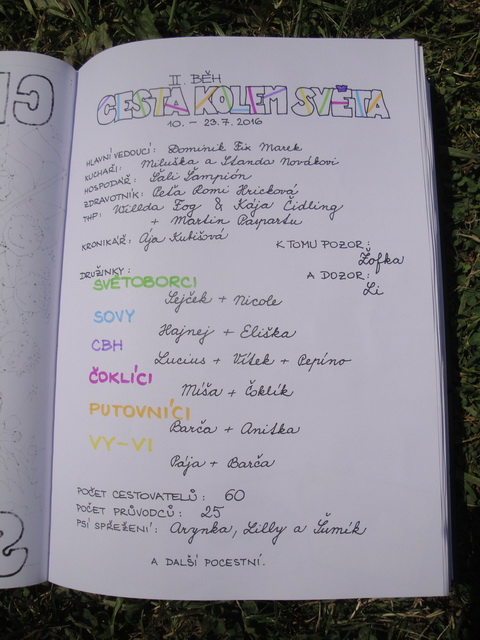 II. BĚH
CESTA KOLEM SVĚTA
10. – 23.7. 2016
HLAVNÍ VEDOUCÍ: Dominik Fix Marek
KUCHAŘI: Miluška a Standa Novákovi
HOSPODÁŘ: Šáli Šampión
ZDRAVOTNÍK: Peťa Romi Hricková
THP: Willda Fog & Kája Čidling
+ Martin Paspartu
KRONIKÁŘ: Ája Kubišová
K TOMU POZOR:
Žofka
A DOZOR:
Li
DRUŽINKY:
SVĚTOBORCI
Sejček + Nicole
SOVY
Hajnej + Eliška
CBH
Lucius + Vítek + Pepíno
ČOKLÍCI
Míša + Čoklík
PUTOVNÍCI
Barča + Anitka
VY-VI
Pája + Barča
POČET CESTOVATELŮ: 60
POČET PRŮVODCŮ: 25
PSÍ SPŘEŽENÍ: Arynka, Lilly a Šumík
A DALŠÍ POCESTNÍ.